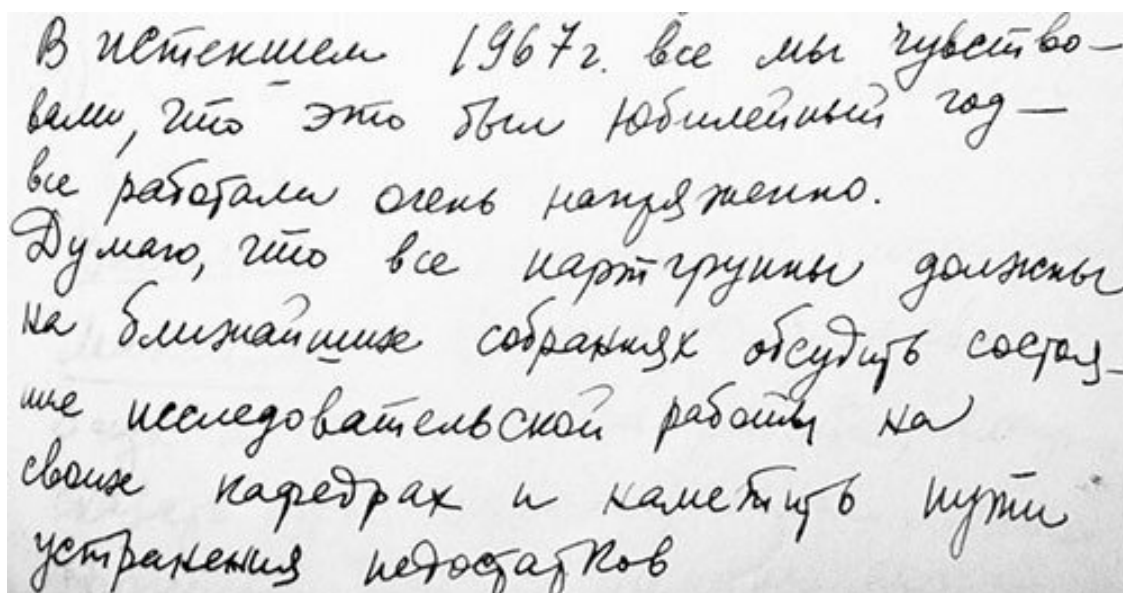 В истекшем 1967г. все мы чувство-
вали, что это был юбилейный год —
все работали очень напряженно.
Думаю, что все партгруппы должны
на ближайших собраниях обсудить состоя-
ние исследовательской работы на
своих кафедрах и наметить пути
устранения недостатков